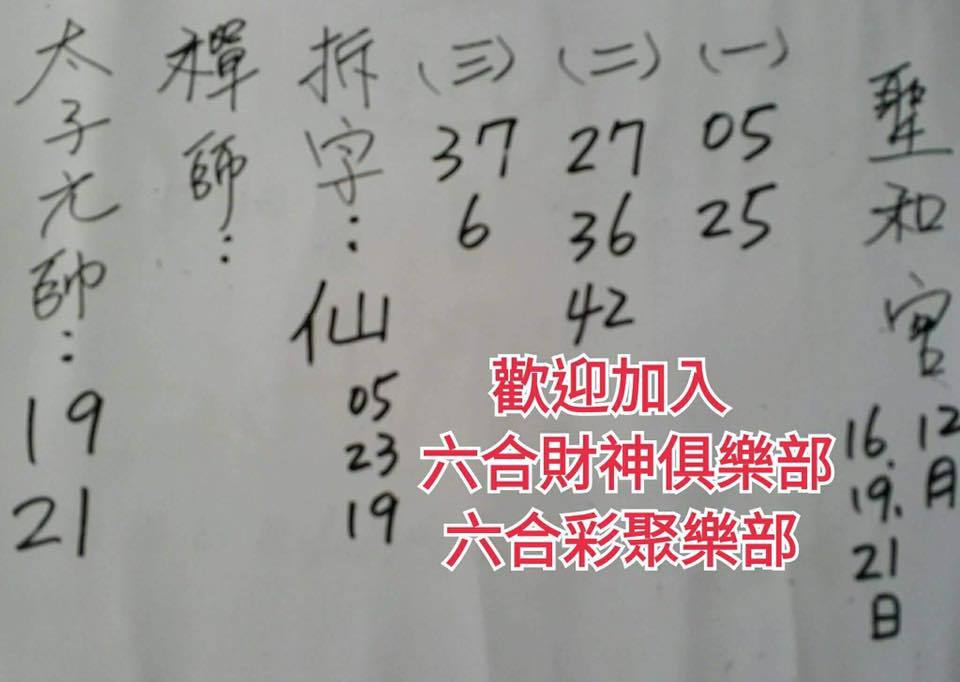 聖和宮
12月
16.19.21日
(一)
05
25
(二)
27
36
42
(三)
37
6
拆字:仙
05
23
19
禪師:
太子元帥:
19
21
歡迎加入
六合財神俱樂部
六合彩聚樂部